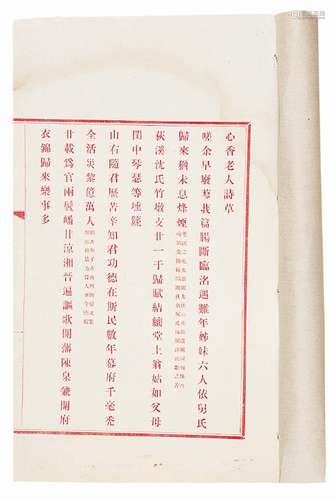 心香老人詩草
嗟余早廢蓼莪篇腸斷臨洺遇難年姊妹六人依舅氏
歸來猶未息烽煙
荻溪沈氏竹墩支廿一于歸賦結縭堂上翁姑如父母
閨中琴瑟等塤篪
山右隨君歷苦辛知君功德在斯民數年幕府千毫禿
全活災黎億萬人
廿載爲官兩鬢皤甘涼湘晉遍謳歌開藩陳臬兼開府
衣錦歸來樂事多